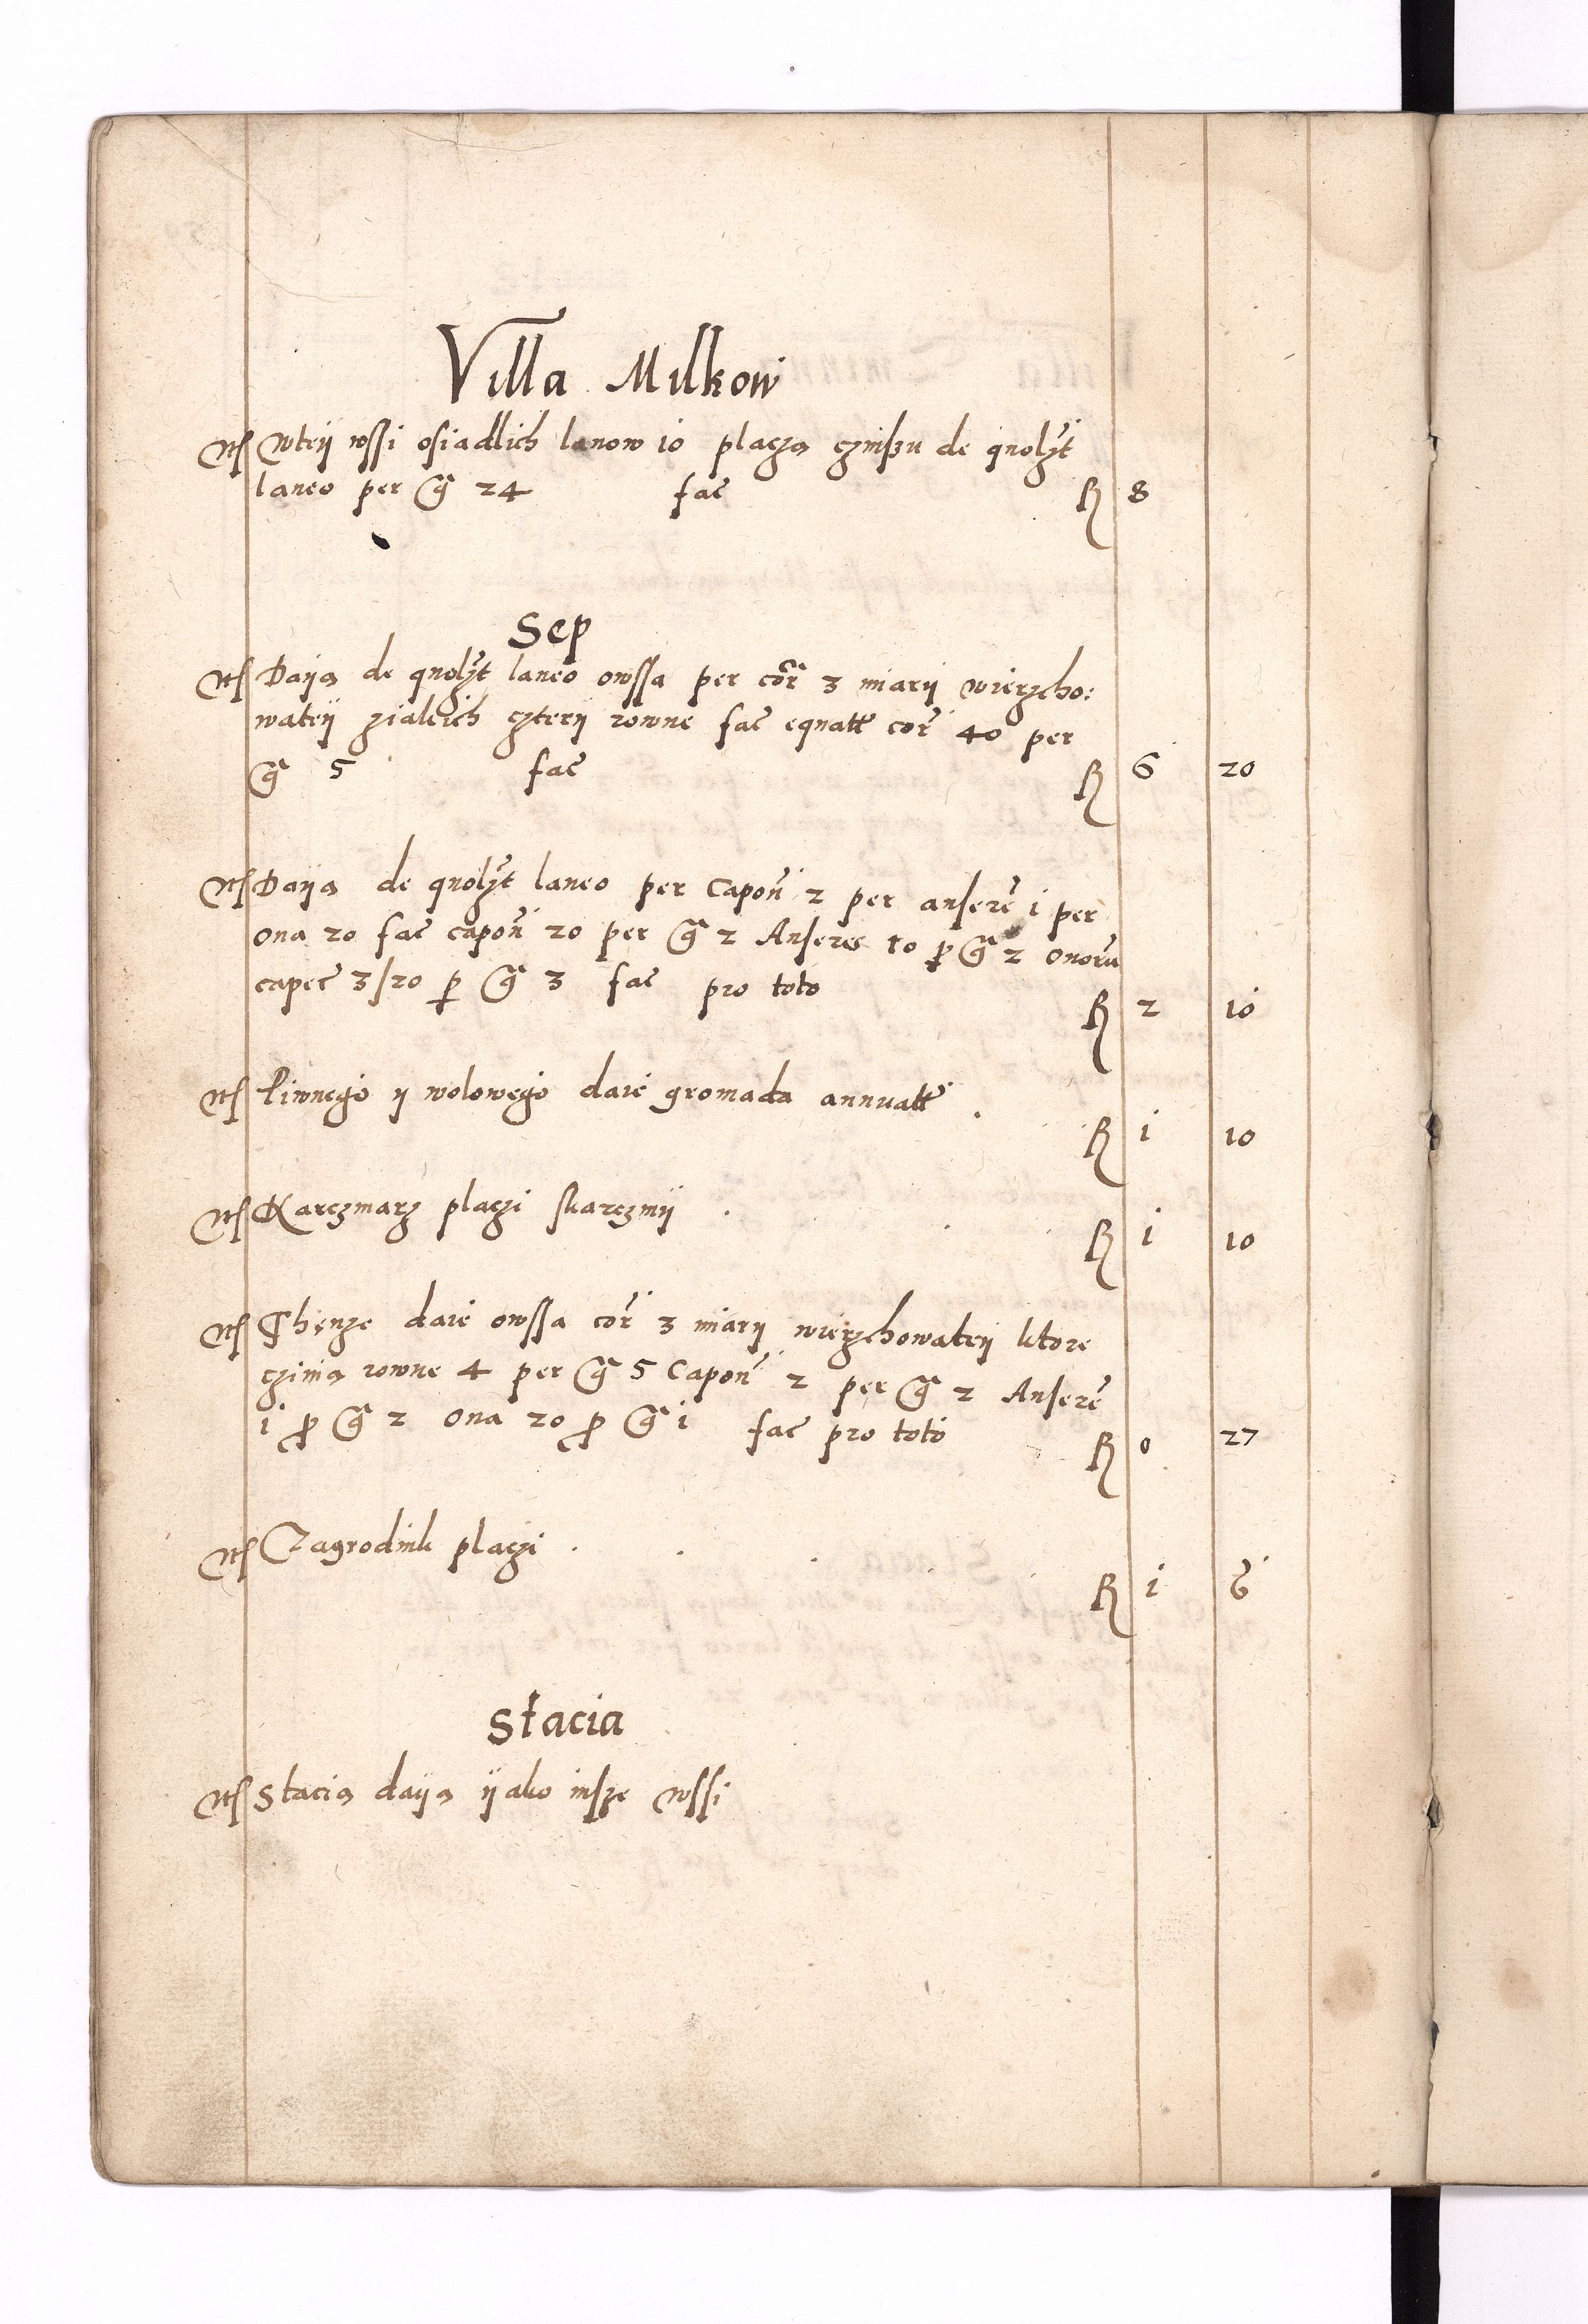 Villa Milkow
Itᶠ Wteÿ wssi osiadlich lanow 10 placza czinszu de quolzt
laneo per gͬ 24 fac fl 8
Sep
Itᶠ Daÿa de quolzt laneo owssa per cor 3 miarÿ wierzcho:
wateÿ ziakich czterÿ rowne fac equałł cor 40 per
gͬ 5 fac fl 6 20
Itᶠ Daÿa de quolzt laneo per Capon 2 per ansere 1 per
ona 20 fac capon 20 per gͬ 2 Anseres 10 p gͬ 2 onoru
capec 3/20 p gͬ 3 fac pro toto fl 2 10
Itᶠ Piwnego ÿ wolowego daie gromada annuałł fl 1 10
Itᶠ Karczmarz placzi skarczmÿ fl 1 10
Itᶠ daie owssa cor 3 miarÿ wierzchowateÿ ktore
czinia rowne 4 per gͬ 5 Capon 2 per gͬ 2 Ansere
1 p gͬ 2 ona 20 p gͬ 1 fac pro toto fl 0 27
Itᶠ Zagrodnik placzi fl 1 6
Stacia
Itᶠ Stacia daÿa ÿako insze wssi